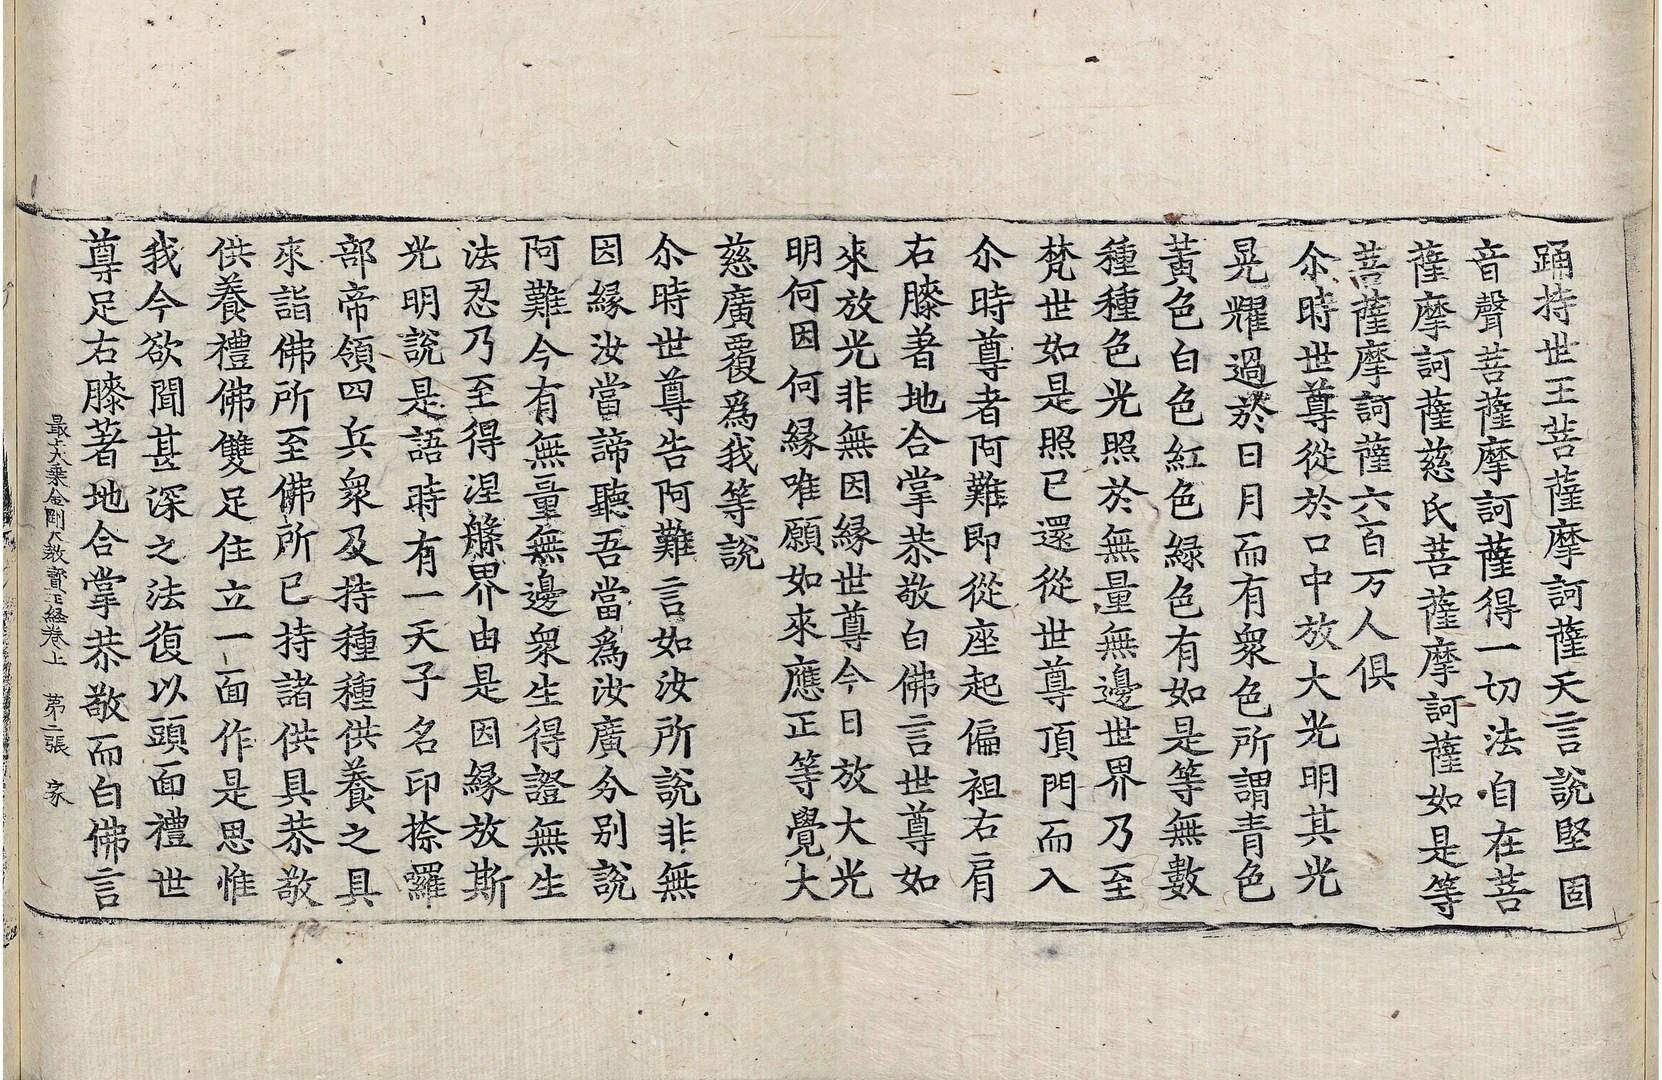 踊持世王菩薩摩訶薩天言說堅固
音聲菩薩摩訶薩得一切法自在菩
薩摩訶薩慈氏菩薩摩訶薩如是等
菩薩摩訶薩六百万人俱
尒時世尊從於口中放大光明其光
晃耀過於日月而有衆色所謂青色
黃色白色紅色緑色有如是等無數
種種色光照於無量無邊世界乃至
梵世如是照已還從世尊頂門而入
尒時尊者阿難即從座起偏袒右肩
右膝著地合掌恭敬白佛言世尊如
來放光非無因縁世尊今日放大光
明何因何縁唯願如來應正等覺大
慈廣覆爲我等說
尒時世尊告阿難言如汝所說非無
因縁汝當諦聽吾當爲汝廣分别說
阿難今有無量無邊衆生得證無生
法忍乃至得涅槃界由是因縁放斯
光明說是語時有一天子名印捺囉
部帝領四兵衆及持種種供養之具
來詣佛所至佛所已持諸供具恭敬
供養禮佛雙足住立一面作是思惟
我今欲聞甚深之法復以頭面禮世
尊足右膝著地合掌恭敬而白佛言
最大乘金剛大教寳王經卷上 第二張 家